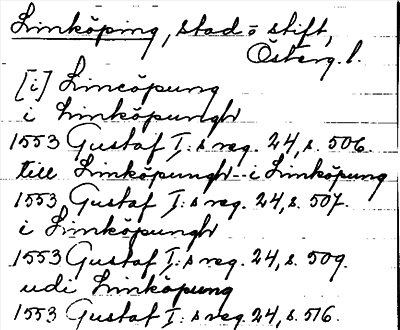 Linköping, stad o stift,
Österg. l.
[i] Lincöpung
i Linköpungh
1553 Gustaf I:s reg. 24, s. 506.
till Linköpungh - i Linköpung
1553 Gustaf I:s reg. 24, s. 507.
i Linköpungh
1553 Gustaf I:s reg. 24, s. 509.
udi Linköpung
1553 Gustaf I:s reg. 24, s. 516.